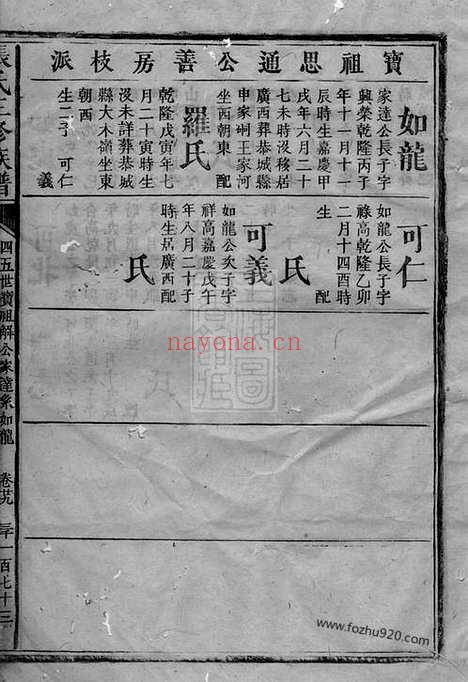 寶祖思通公善房枝派
如龍
家達公長子字
興榮乾隆丙子
年十一月十一
辰時生嘉慶甲
戌年六月二十
七未時沒移居
廣西葬恭城縣
申家峒王家河
坐西朝東 配
羅氏
乾隆戊寅年七
月二十寅時生
沒未詳葬恭城
縣大木嶺坐東
朝西
生二子 可仁
義
可仁
如龍公長子字
祿高乾隆乙卯
二月十四酉時
生 配
氏
可義
如龍公次子字
祥高嘉慶戊午
年八月二十子
時生居廣西配
氏
張氏三修族譜
四五世寶祖解公家達系如龍
一百七十三
nayona.cn
www.fozhu920.com